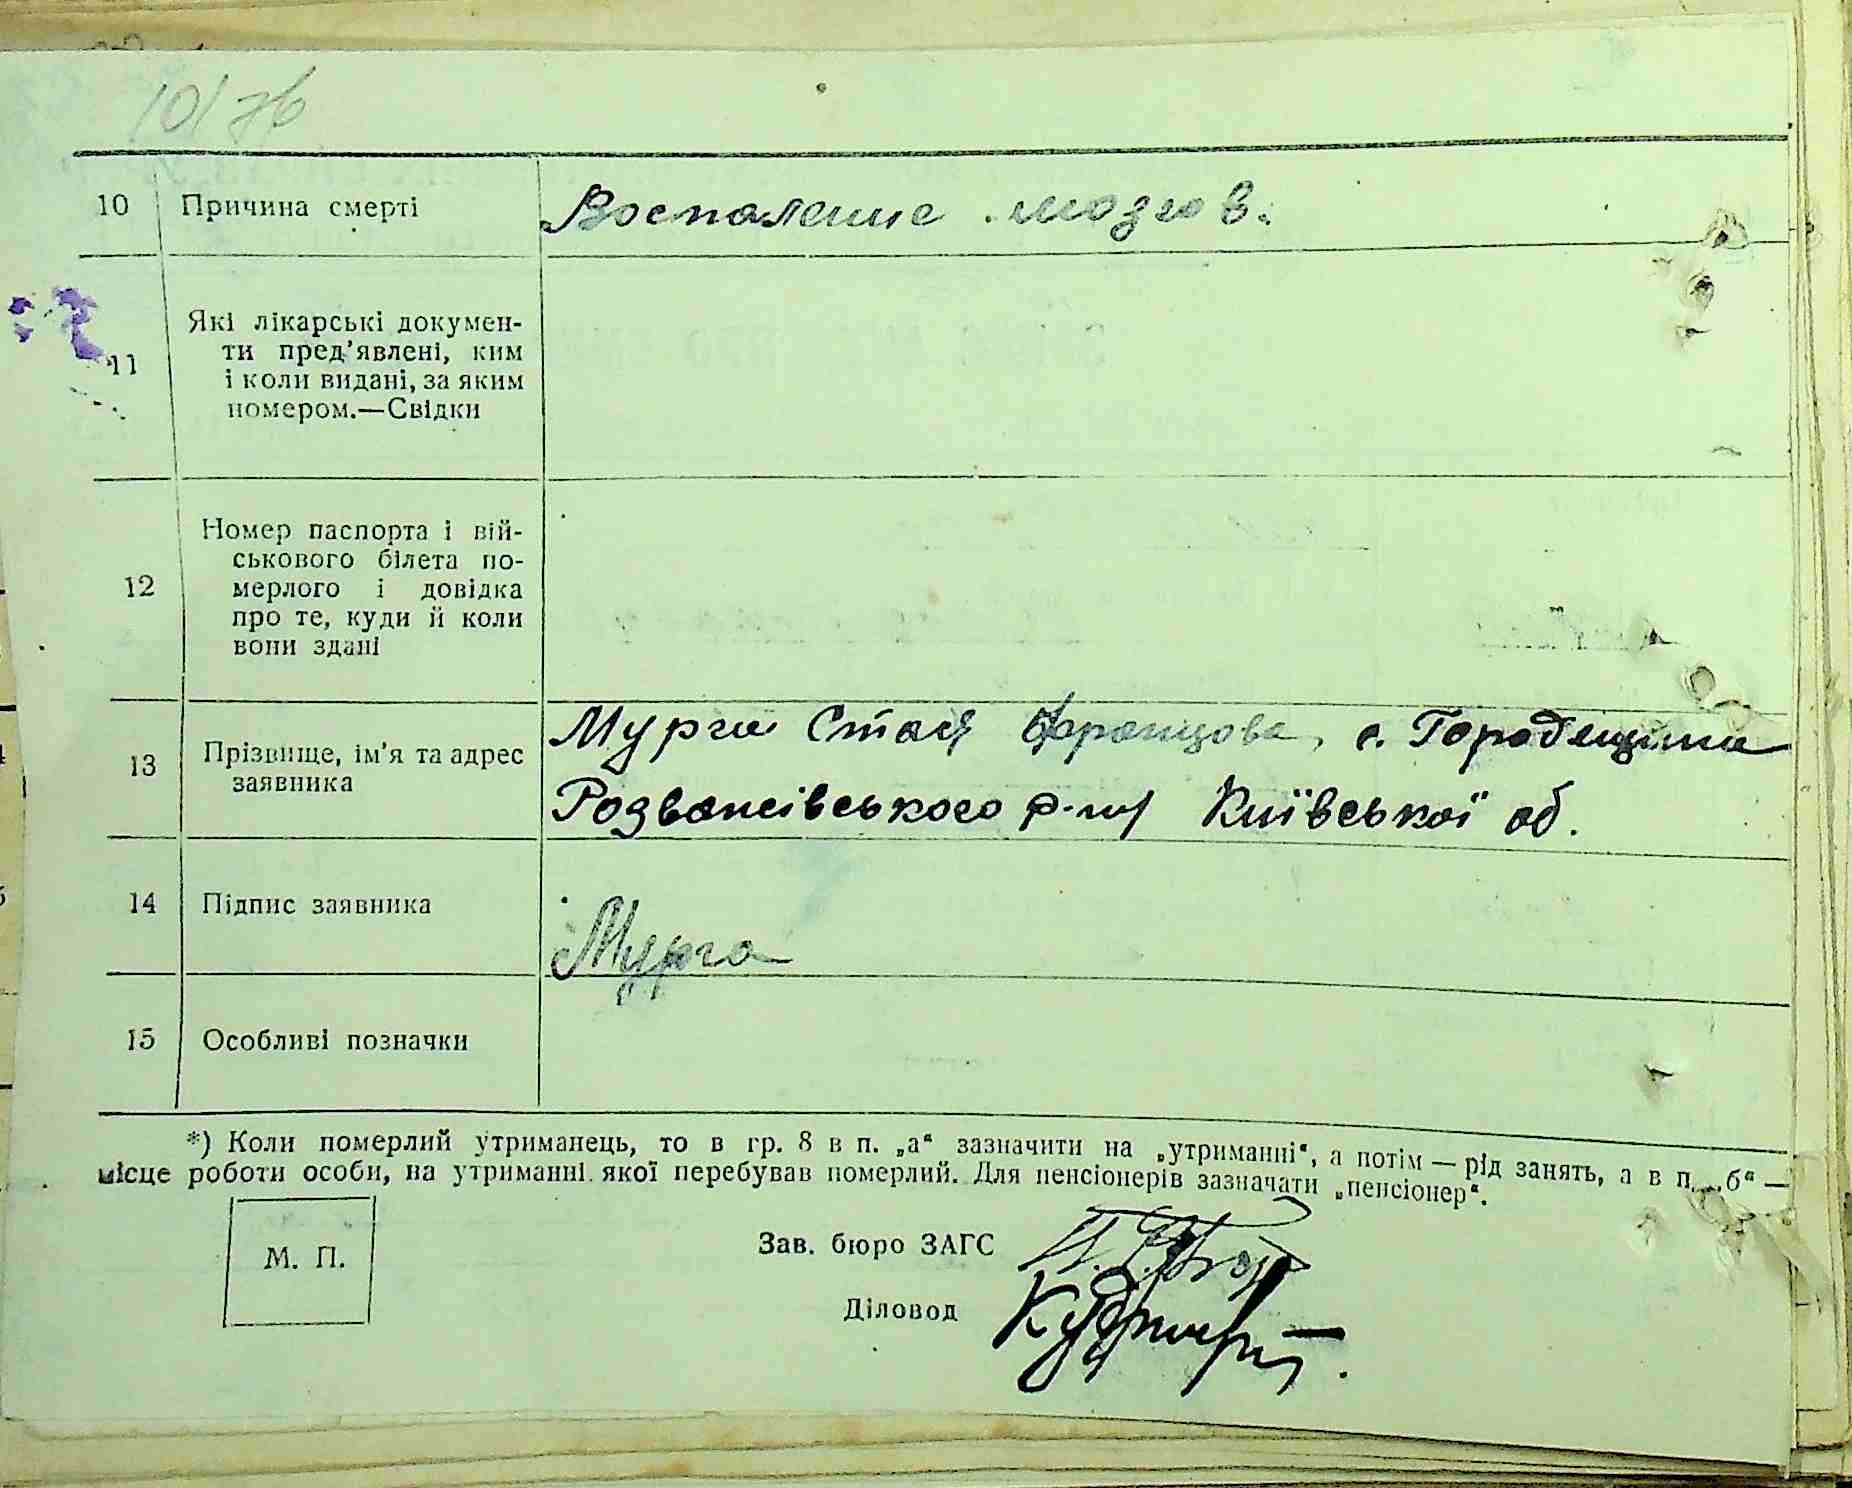 10
Причина смерті
Воспаление мозгов.
11
Які лікарські докумен-
ти пред'явлені, ким
і коли видані, за яким
номером.—Свідки
12
Номер паспорта і вій-
ськового білета по-
мерлого і довідка
про те, куди й коли
вони здані
13
Прізвище, ім'я та адрес
заявника
Мурга Стася Францова, с. Городещина
Розважівського р-ну Київської об.
14
Підпис заявника
Мурга
15
Особливі позначки
*) Коли померлий утриманець, то в гр. 8 в п. „а“ зазначити на „утриманні“, а потім — рід занять, а в п. „б“ —
місце роботи особи, на утриманні якої перебував померлий. Для пенсіонерів зазначати „пенсіонер“.
М. П.
Зав. бюро ЗАГС
Діловод